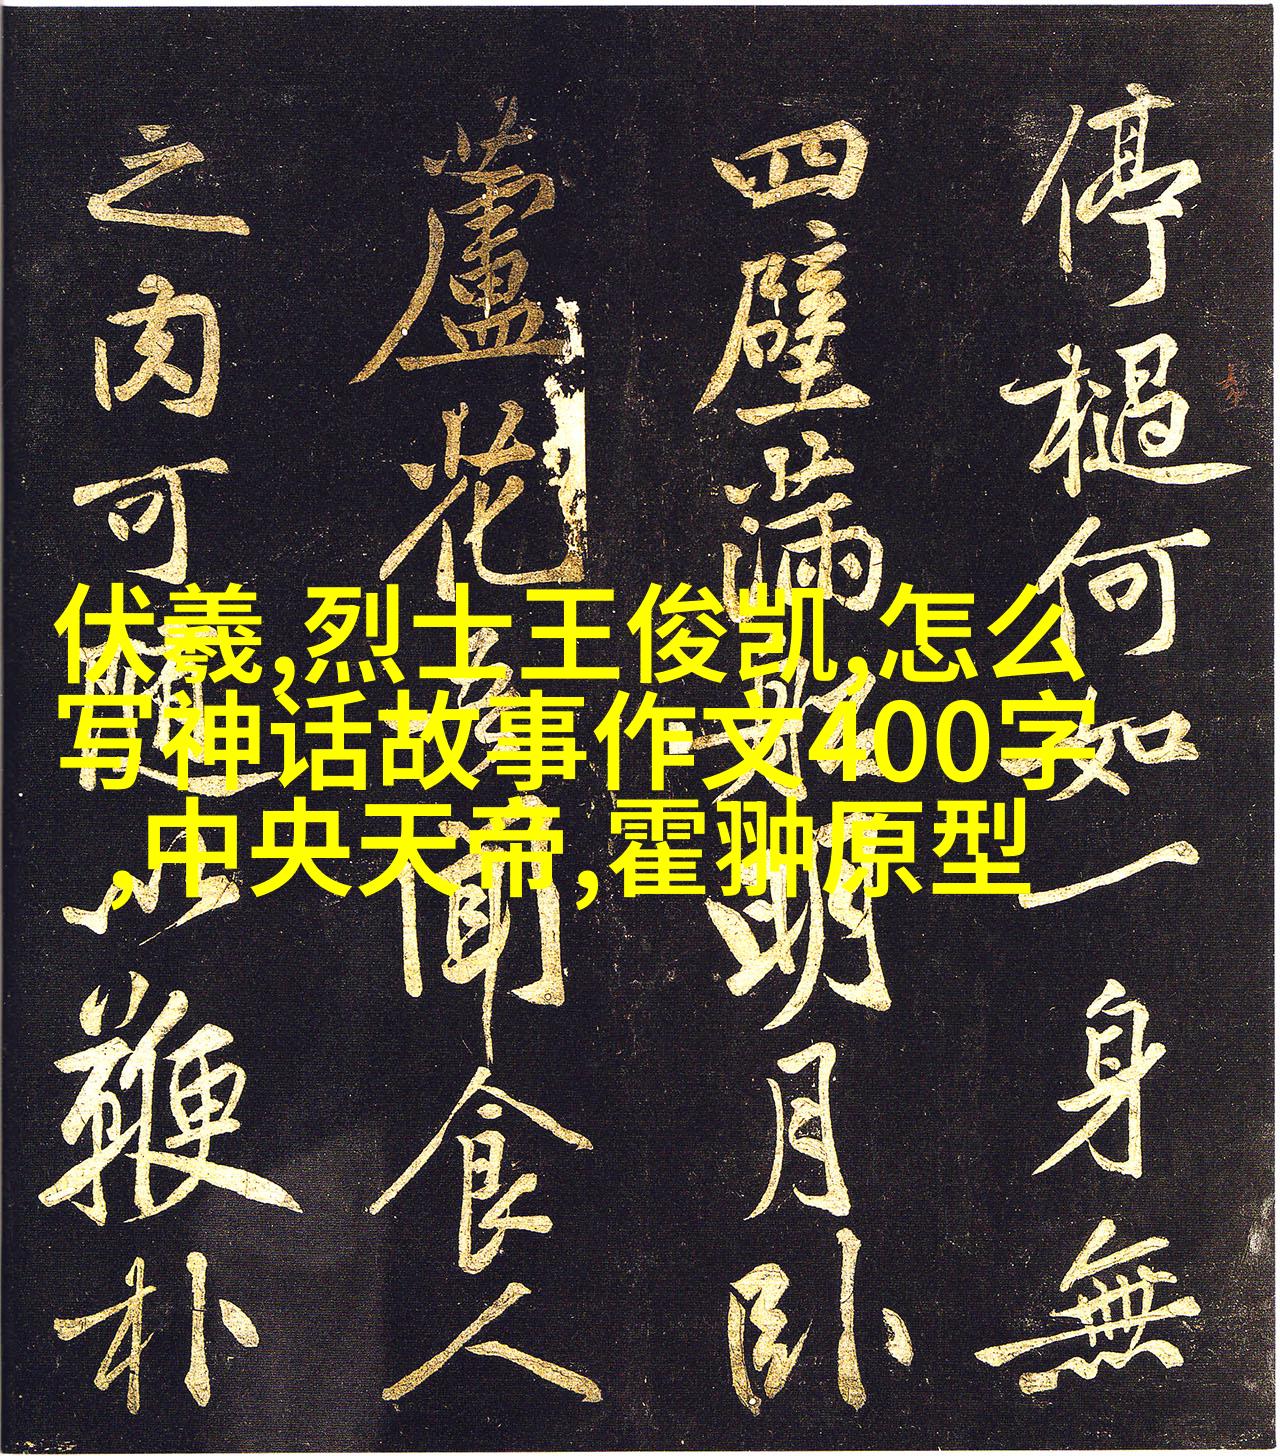 停檛何如一身無
四壁滿船明月臥
蘆花吾聞食人
之肉可隨以鞭朴
伏羲,烈士王俊凯,怎么
写神话故事作文400字
,中央天帝,霍翀原型